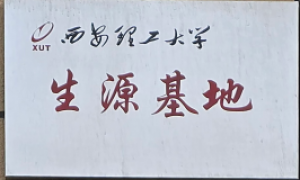 XUT 西安理工大学
生源基地